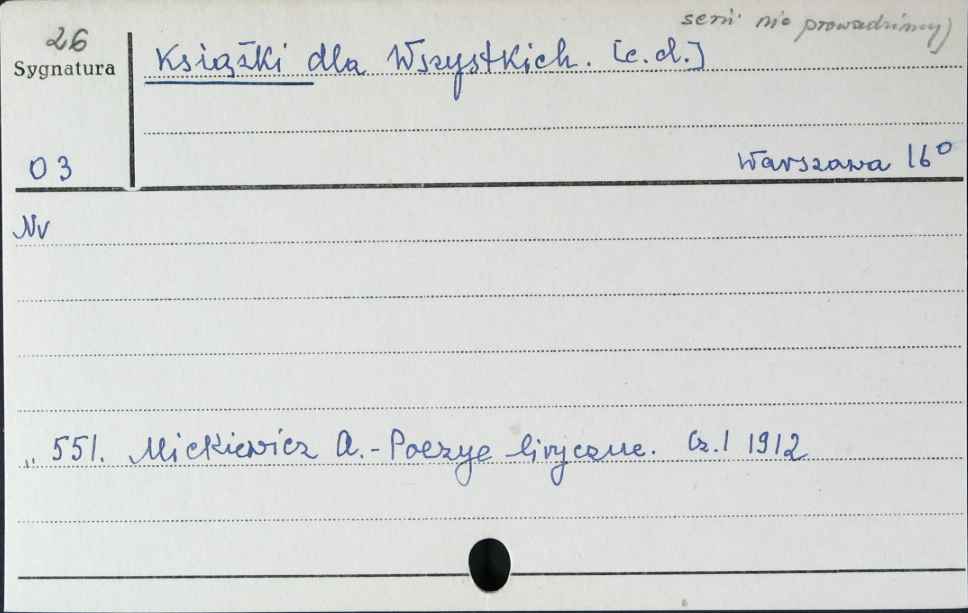 serii nie prowadzimy)
26
Sygnatura
Książki dla Wszystkich. [c.d.]
03
Warszawa 16°
Nr
„ 551. Mickiewicz A. - Poezye liryczne. Cz. I 1912